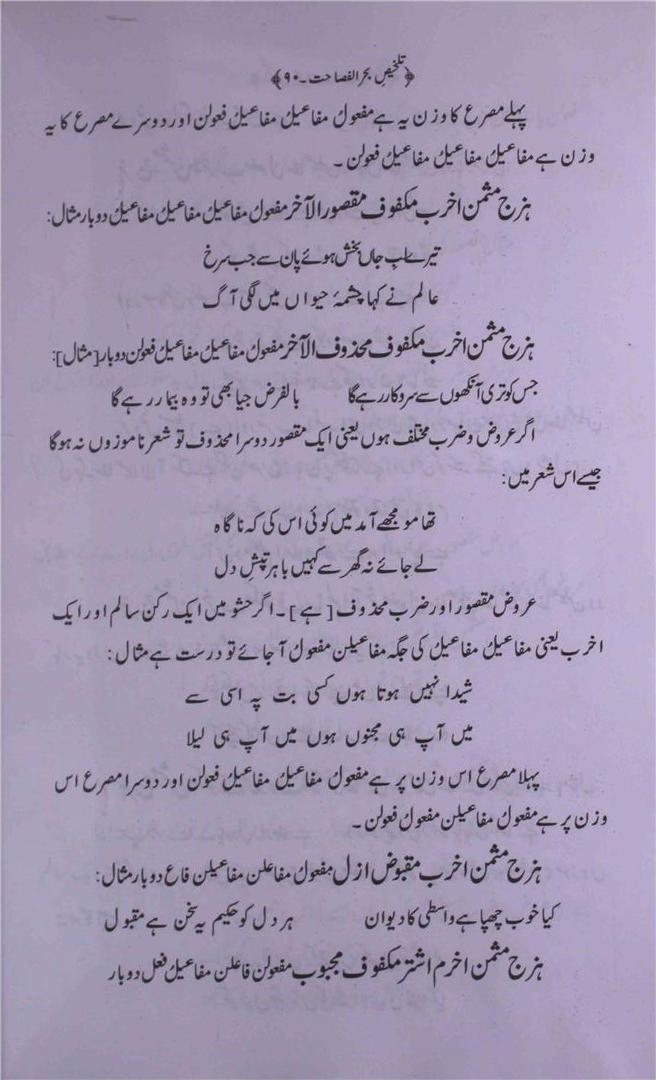 ﴿تلخیصِ بحر الفصاحت۔۹۰﴾
پہلے مصرع کا وزن یہ ہے مفعولُ مفاعیلُ مفاعیلُ فعولن اور دوسرے مصرع کا یہ
وزن ہے مفاعیلُ مفاعیلُ مفاعیلُ فعولن۔
ہزج مثمن اخرب مکفوف مقصور الآخر مفعولُ مفاعیلُ مفاعیلُ مفاعیلُ دوبار مثال:
تیرے لبِ جاں بخش ہوئے پان سے جب سرخ
عالم نے کہا چشمۂ حیواں میں لگی آگ
ہزج مثمن اخرب مکفوف محذوف الآخر مفعولُ مفاعیلُ مفاعیلُ فعولن دوبار [مثال]:
جس کو تری آنکھوں سے سروکار رہے گا بالفرض جیا بھی تو وہ بیمار رہے گا
اگر عروض و ضرب مختلف ہوں یعنی ایک مقصور دوسرا محذوف تو شعر ناموزوں نہ ہوگا
جیسے اس شعر میں:
تھا مومجھے آمد میں کوئی اس کی کہ ناگاہ
لے جائے نہ گھر سے کہیں باہر تپشِ دل
عروض مقصور اور ضرب محذوف [ہے]۔ اگر حشو میں ایک رکن سالم اور ایک
اخرب یعنی مفاعیلُ مفاعیلُ کی جگہ مفاعیلن مفعولُ آجائے تو درست ہے مثال:
شیدا نہیں ہوتا ہوں کسی بت پہ اسی سے
میں آپ ہی مجنوں ہوں میں آپ ہی لیلا
پہلا مصرع اس وزن پر ہے مفعولُ مفاعیلُ مفاعیلُ فعولن اور دوسرا مصرع اس
وزن پر ہے مفعولُ مفاعیلن مفعولُ فعولن۔
ہزج مثمن اخرب مقبوض ازل مفعولُ مفاعلن مفاعیلن فاع دوبار مثال:
کیا خوب چھپا ہے واسطی کا دیوان ہر دل کو حکیم یہ سخن ہے مقبول
ہزج مثمن اخرم اشتر مکفوف مجبوب مفعولن فاعلن مفاعیلُ فعل دوبار